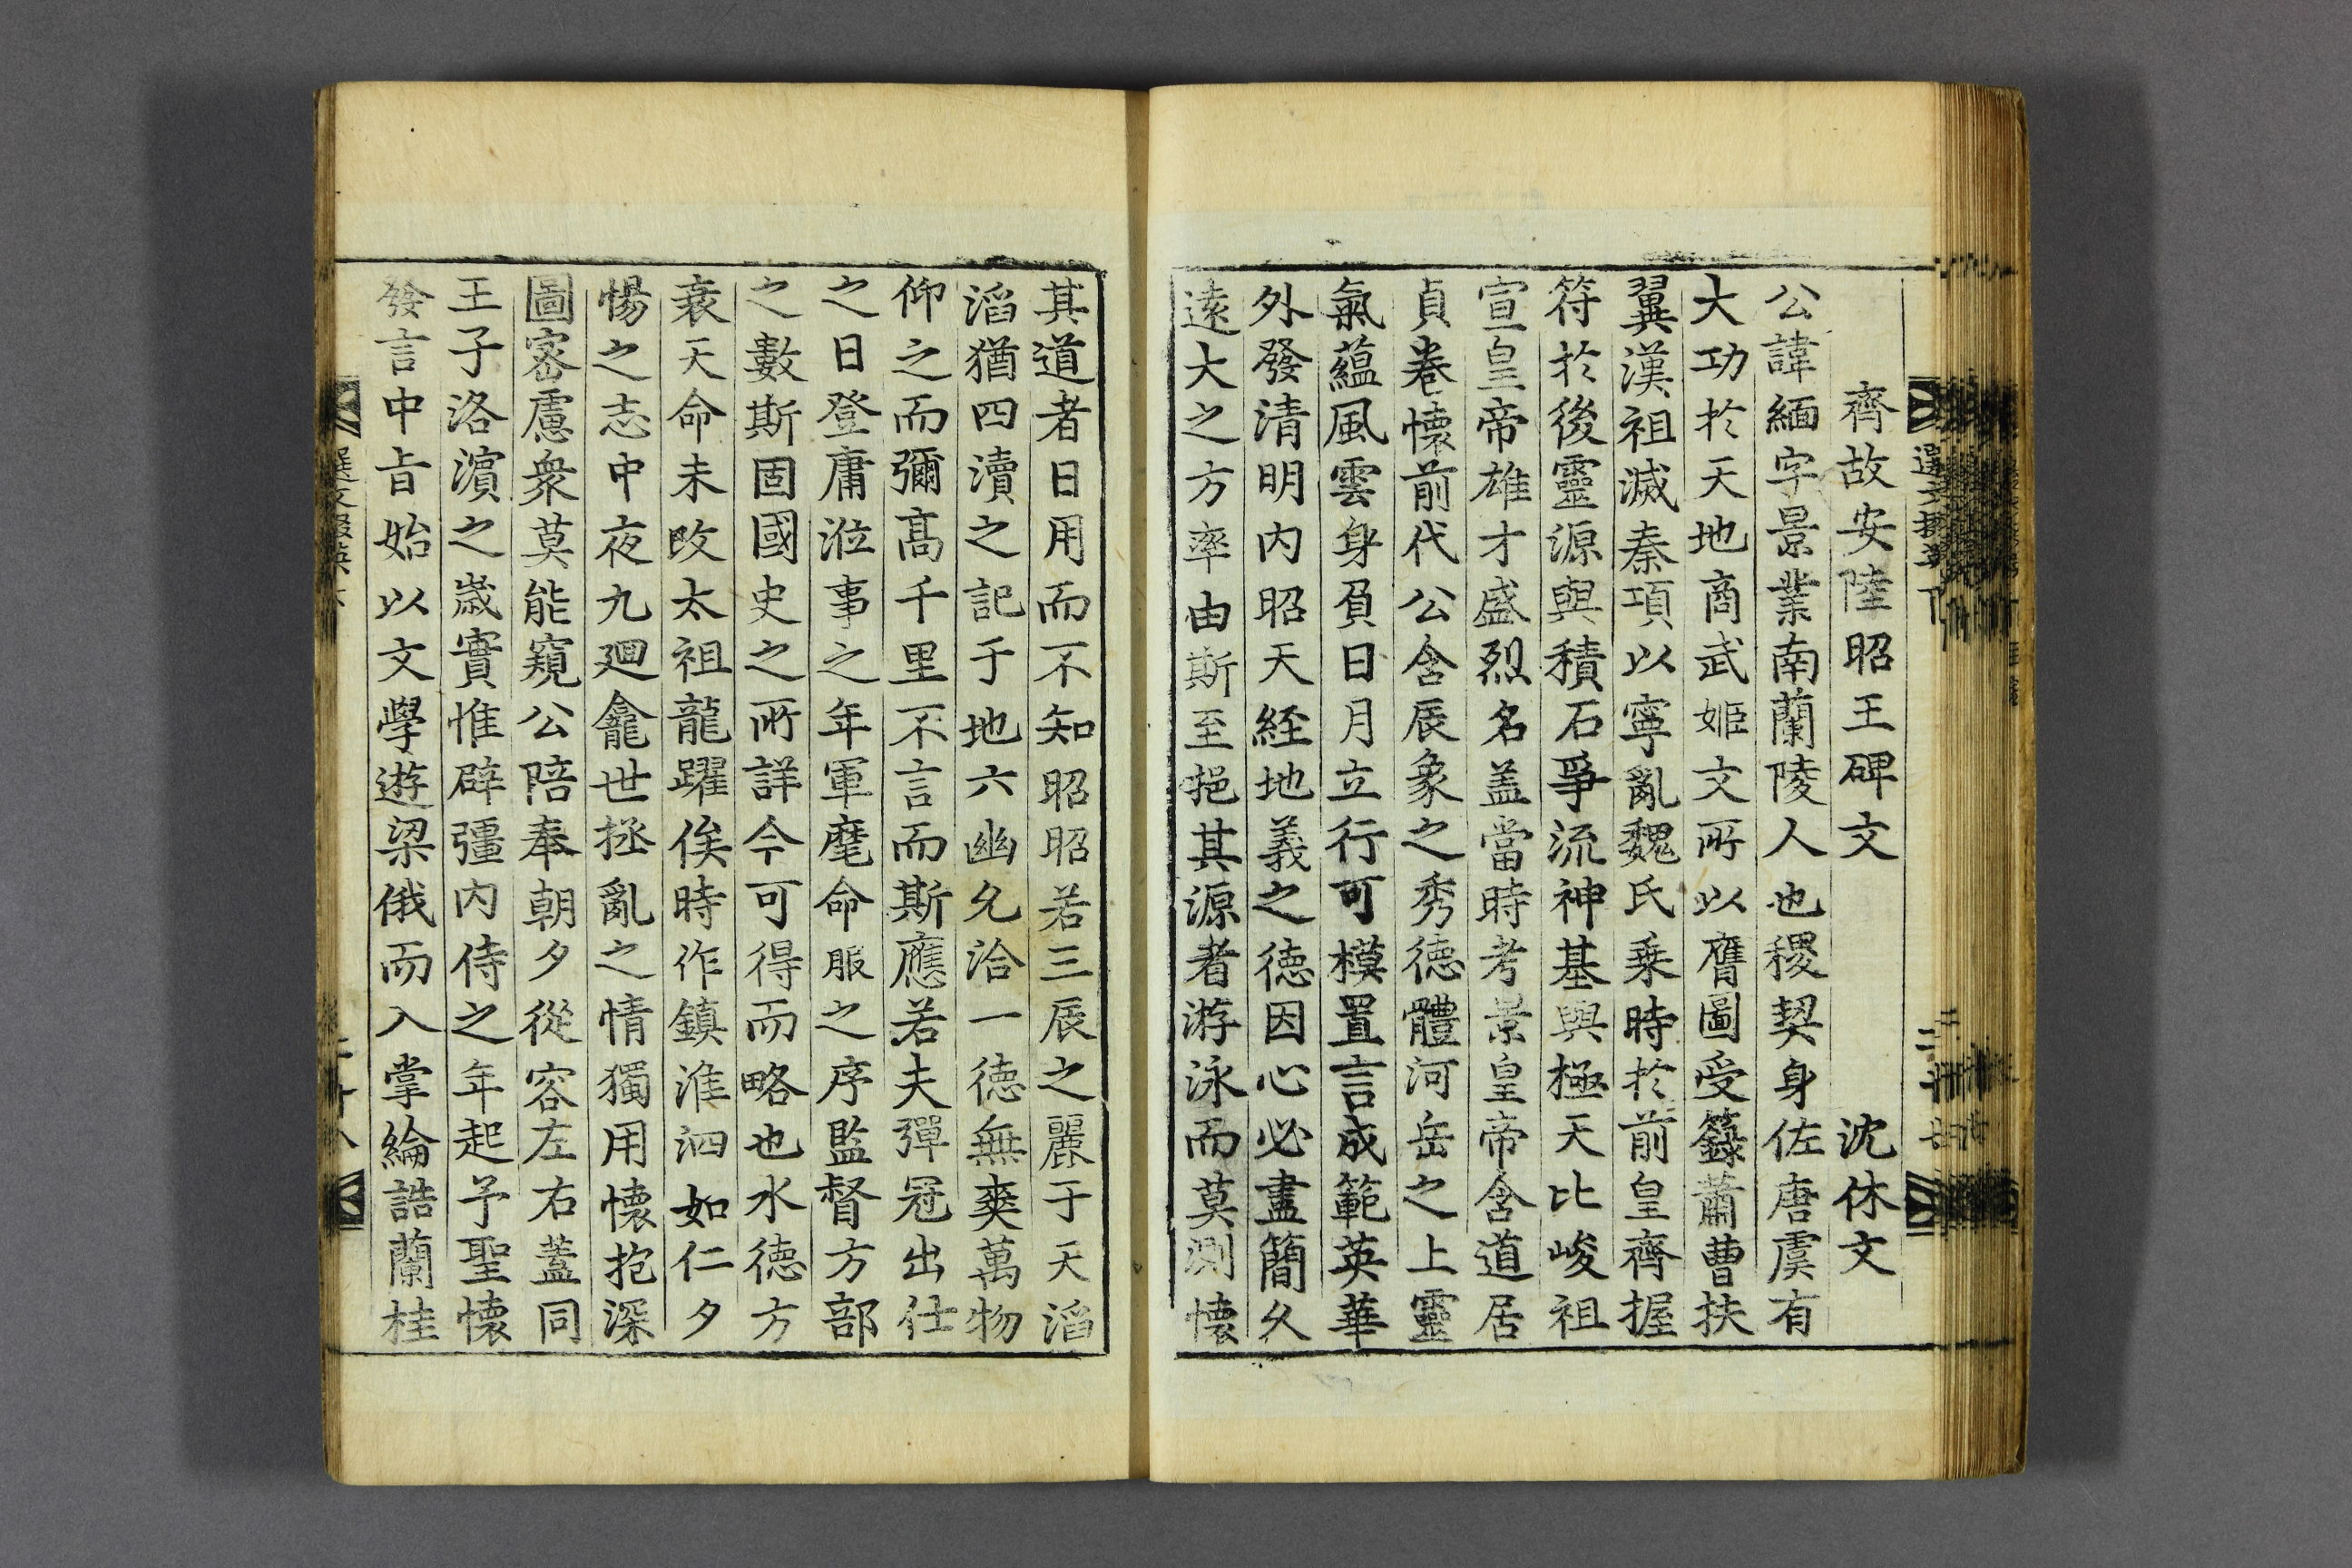 齊故安陸昭王碑文　沈休文
公諱緬字景業南蘭陵人也稷契身佐唐虞有
大功於天地商武姬文所以膺圖受籙蕭曹扶
翼漢祖滅秦項以寧亂魏氏乗時於前皇齊握
符於後靈源與積石爭流神基與極天比峻祖
宣皇帝雄才盛烈名盖當時考景皇帝含道居
貞卷懷前代公含辰象之秀德體河岳之上靈
氣蘊風雲身負日月立行可模置言成範英華
外發清明內昭天経地義之德因心必盡簡久
遠大之方率由斯至挹其源者游泳而莫測懷
其道者日用而不知昭昭若三辰之麗于天滔
滔猶四瀆之記于地六幽允洽一德無爽萬物
仰之而彌髙千里不言而斯應若夫彈冠出仕
之日登庸涖事之年軍麾命服之序監督方部
之數斯固國史之所詳今可得而略也水德方
衰天命未改太祖龍躍俟時作鎮淮泗如仁夕
惕之志中夜九廻龕世拯亂之情獨用懷抱深
圖宻慮衆莫能窺公陪奉朝夕從容左右蓋同
王子洛濵之歲實惟辟彊內侍之年起予聖懷
發言中旨始以文學遊梁俄而入掌綸誥蘭桂